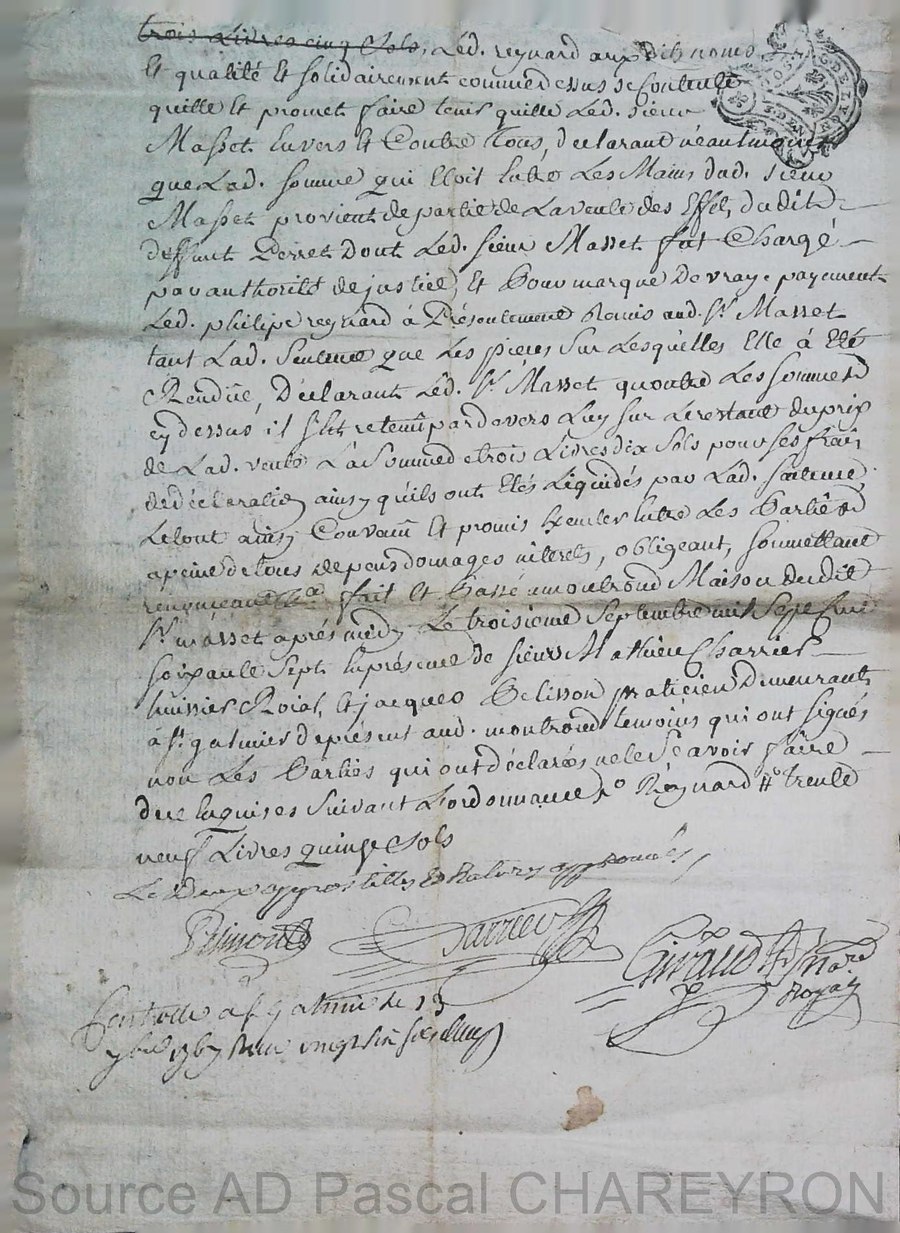 trois Livres cinq sols, Led. reynard aux dits noms
Et qualité Et solidairement comme dessus se contente
quitte Et promet faire tenir quitte Led. Sieur
Masset Envers Et Contre Tous, declarant néantmoins
que Lad. somme qui Etoit Entre Les Mains dud. Sieur
Masset provient de partie de La vente des Effets dudit
deffunt Perret Dont Led. sieur Masset fut Chargé
par authorité de justice, Et Pour marque De vray payement
Led. philipe reynard à Présentement Remis aud. Sr. Masset
tant Lad. Sentence que Les pieces Sur Lesquelles Elle à Eté
Rendüe, Déclarant Led. Sr. Masset quoutre Les sommes
cy dessus il s'Est retenu par devers Luy sur Le restant du prix
de Lad. vente La Somme de trois Livres Dix Sols pour ses frais
de déclaration ainsy qu'ils ont Etés Liquidés par Lad. sentence,
Le tout ainsy Convenu Et promis Executer Entre Les Parties
a peine de tous depens domages interets, obligeant, soumettant
renonceant &a. fait Et Passé a montrond Maison dudit
Sr. masset après midy Le troisieme Septembre mil Sept Cent
soixante Sept En présence de sieurs Mathieu Charrier
huissier Roial, Et jacques Pelisson praticien Demeurants
à St. galmier de présent aud. montrond temoins qui ont signés
non Les Parties qui ont déclarées ne le Scavoir faire
de ce Enquises Suivant L'ordonnance Reynard # trente
neuf Livres quinze Sols
Le Deux appostilles Et Ratures approuvés,
Charrier
Giraud Nore
Royal
Controlle a St galmier le 13
7bre 1767 Reçu vingt six sols
Source AD Pascal CHAREYRON